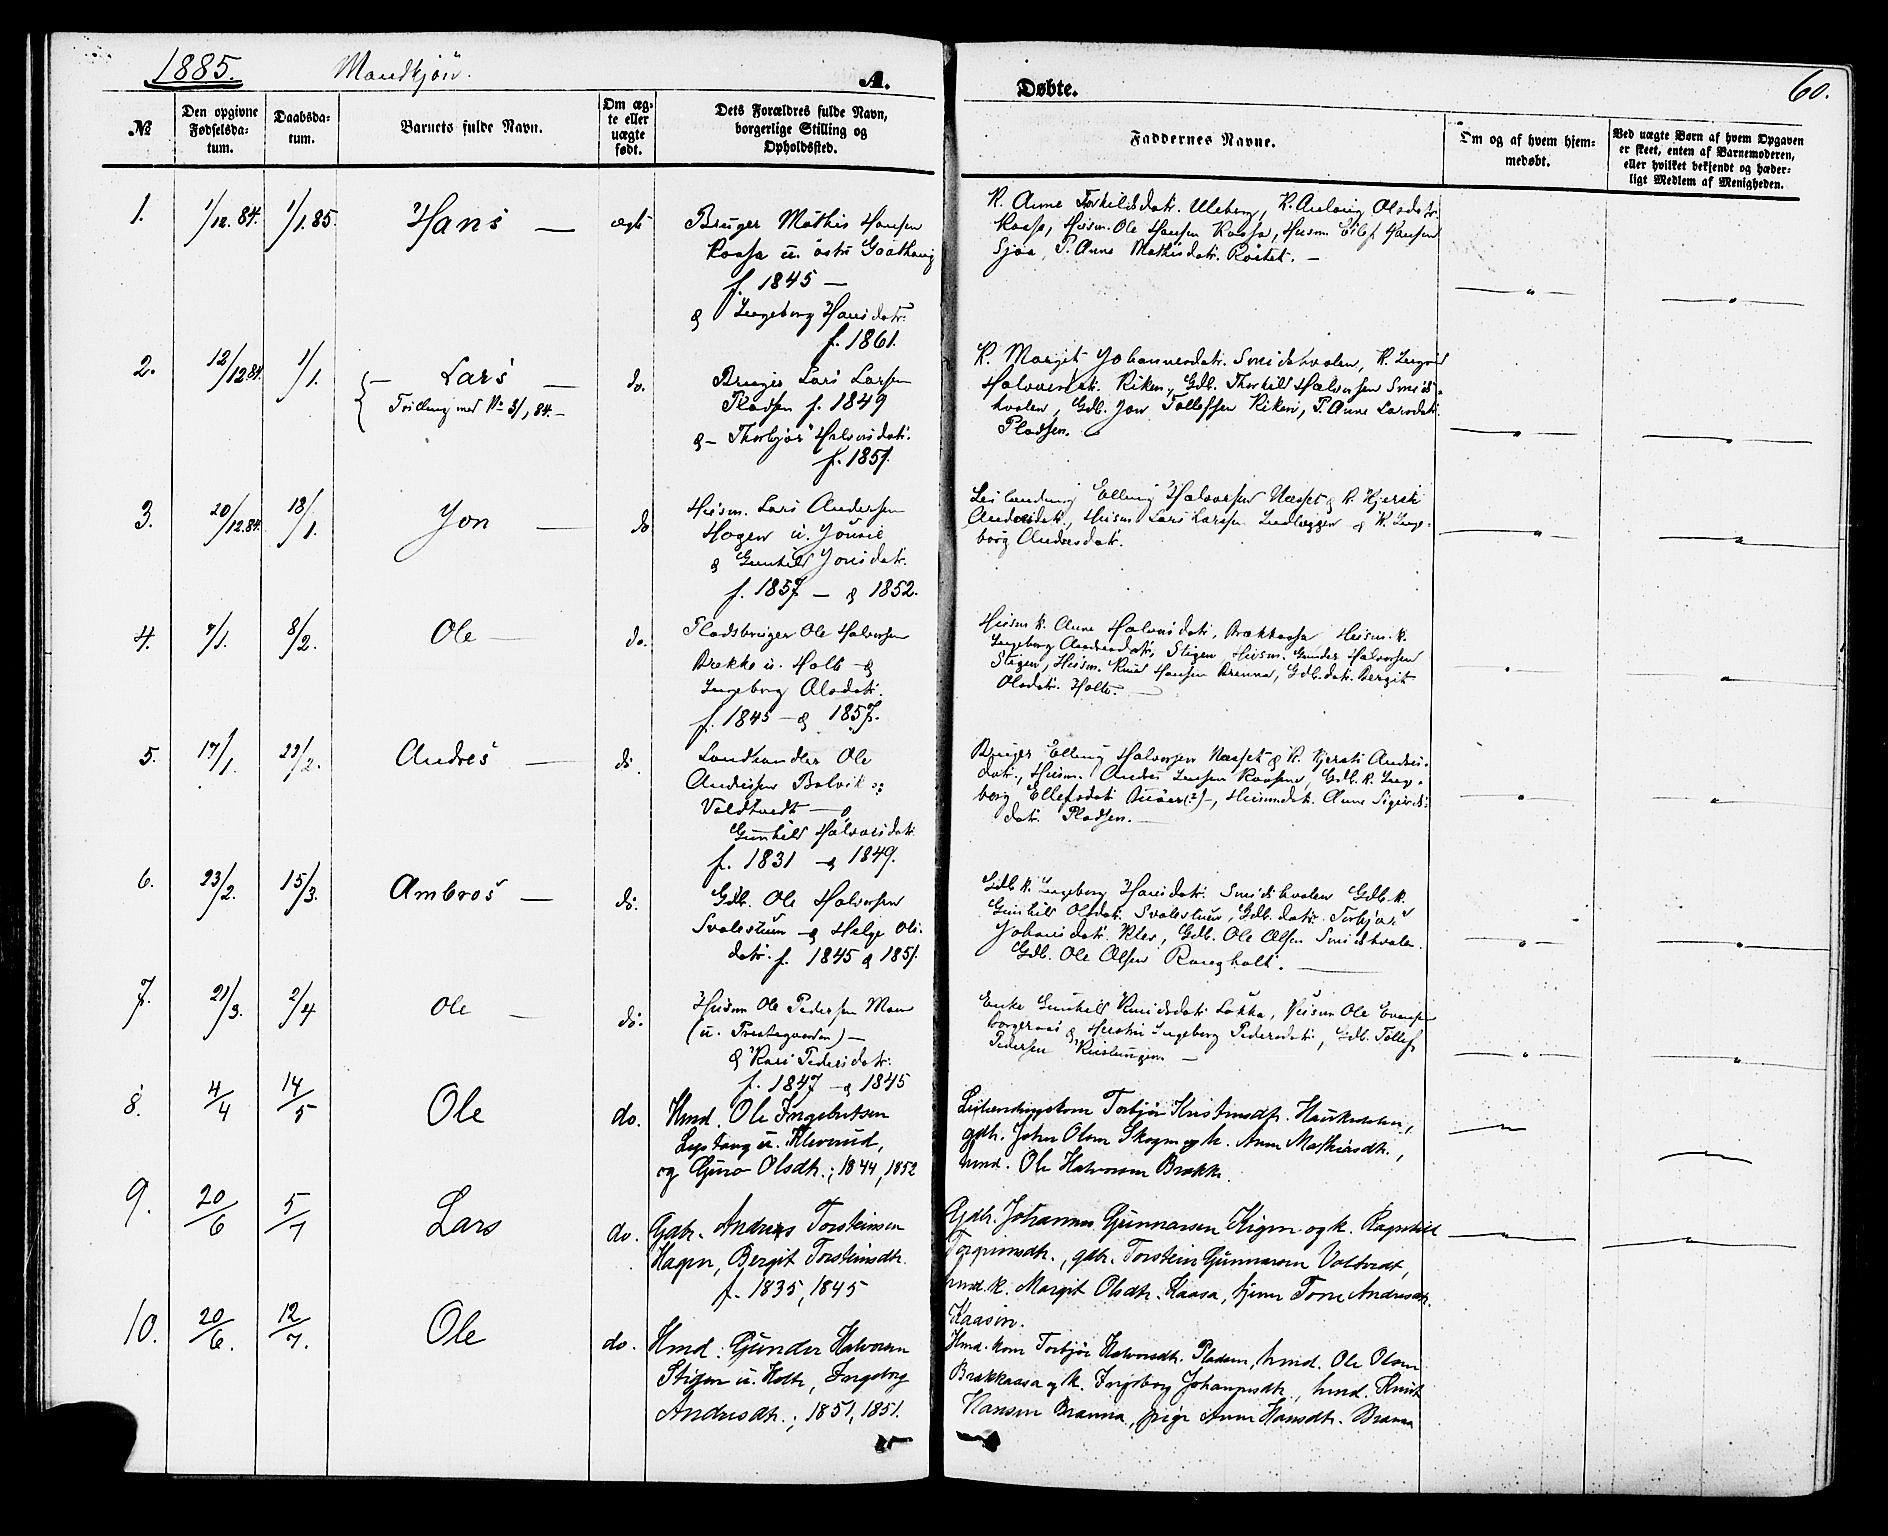 1885. Mandkjön. A. Døbte. 60.
№
Den opgivne Fødselsda-
tum.
Daabsda-
tum.
Barnets fulde Navn.
Om æg-
te eller
uægte
født.
Dets Forældres fulde Navn,
borgerlige Stilling og
Opholdssted.
Faddernes Navne.
Om og af hvem hjem-
medøbt.
Ved uægte Børn af hvem Opgaven
er skeet, enten af Barnemoderen,
eller hvilket bekjendt og hæder-
ligt Medlem af Menigheden.
1. 1/12.84. 1/1.85. Hans — ægte
Bruger Mathis Hansen
Kaasa u. östre
f. 1845 —
& Ingeborg Hansdatr.
f. 1861.
K. Anne Torkildsdatr. Uleberg, K. Olsdatr.
Kaasa, Husm. Ole Hansen Kaasa, Husm. Eilef Hansen
Sjöa, P. Anne Mathisdatr. —
2. 12/12 84. 1/1. Lars — do.
Tvilling med No 31, 84. —
Bruger Lars Larsen
Pladsen f. 1849
& — Thorbjör Halvorsdatr.
f. 1851.
K. Margit Johannesdatr. Smidshvalen, K.
Halvorsdatr. Riken, Gdb. Thorkild Halvorsen Smids-
hvalen, Gdb. Jon Tollefsen Riken, P. Anne Larsdatr.
Pladsen.
3. 20/12.84. 18/1. Jon — do
Husm. Lars Andersen
Hogen u.
& Gunhild Jonsdatr.
f. 1857. — & 1852.
Leilænding Elling Halvorsen Næset & K. Kjersti
Andresdatr., Husm. Lars Larsen & K. Inge-
borg Andresdatr.
4. 7/1. 8/2. Ole — do.
Pladsbruger Ole Halvorsen
Brekke u. Holte &
Ingeborg Olsdatr.
f. 1845 — & 1857.
Husm. k. Anne Halvorsdatr. Brækkaasa Husm. k.
Ingeborg Andresdatr. Stigen, Husm. Gunder Halvorsen
Stigen, Husm. Knud Hansen Brenna, Gdb. datr. Bergit
Olsdatr. Holte. —
5. 17/1. 22/2. Andres — do.
Landhandler Ole
Andersen Bolvik og
Valdtvedt — &
Gunhild Halvorsdatr.
f. 1831 — & 1849.
Bruger Elling Halvorsen Næset & K. Kjersti Andres-
datr., Husm. Andres Jensen Kaasen, Gdb. k. Inge-
borg Ellefsdatr. (?) —, Husmdatr. Anne Sigurds-
datr. Pladsen. —
6. 23/2. 15/3. Ambros — do.
Gdb. Ole Halvorsen
Svalestuen — & Helge Ols-
datr. f. 1845 & 1851.
Gdb k. Ingeborg Hansdatr. Smidshvalen Gdb. k.
Gunhild Olsdatr. Svalestuen, Gdb. datr. Torbjör
Johansdatr. Klev, Gdb. Ole Olsen Smidshvalen.
Gdb. Ole Olsen. —
7. 21/3. 2/4 Ole — do.
Husm Ole Pedersen Moen
(u. Prestegaarden) —
& Kari Pedersdatr.
f. 1847 — & 1845
Enke Gunhild Knudsdatr. Løkka, Husm Ole Evensen
Borgernæs & Hustru Ingeborg Pedersdatr., Gdb. Tollef
Pedersen —
8. 4/4 14/5 Ole do.
Hmd. Ole Ingebretsen
u. Kleverud,
og Guro Olsdtr.; 1844, 1852
Leilændingskone Torbjör Kristensdtr. Haukedalen,
gdbr. John Olsen Skogen og k. Anne Mathiasdtr.,
hmd. Ole Halvorsen Brække.
9. 20/6 5/7 Lars do.
Gdbr. Andreas Torsteinsen
Hagen, Bergit Torsteinsdtr.
f. 1835, 1845
Gdbr. Johannes Gunnarsen Kigen og k. Ragnhild
Torgrimsdtr., gdbr. Torstein Gunnarsen Valtvedt,
hmd. k. Margit Olsdtr. Kaasa, Tone Andresdtr.
Kaasen.
10. 20/6. 12/7. Ole do.
Hmd. Gunder Halvorsen
Stigen u. Holte, Ingeborg
Andresdtr.; 1851, 1851.
Hmd. kone Torbjör Halvorsdtr. Pladsen, hmd. Ole Olsen
Brækkaasa og k. Ingeborg Johannesdtr., hmd. Knut
Hansen Brænna, pige Anne Hansdtr. Brænna